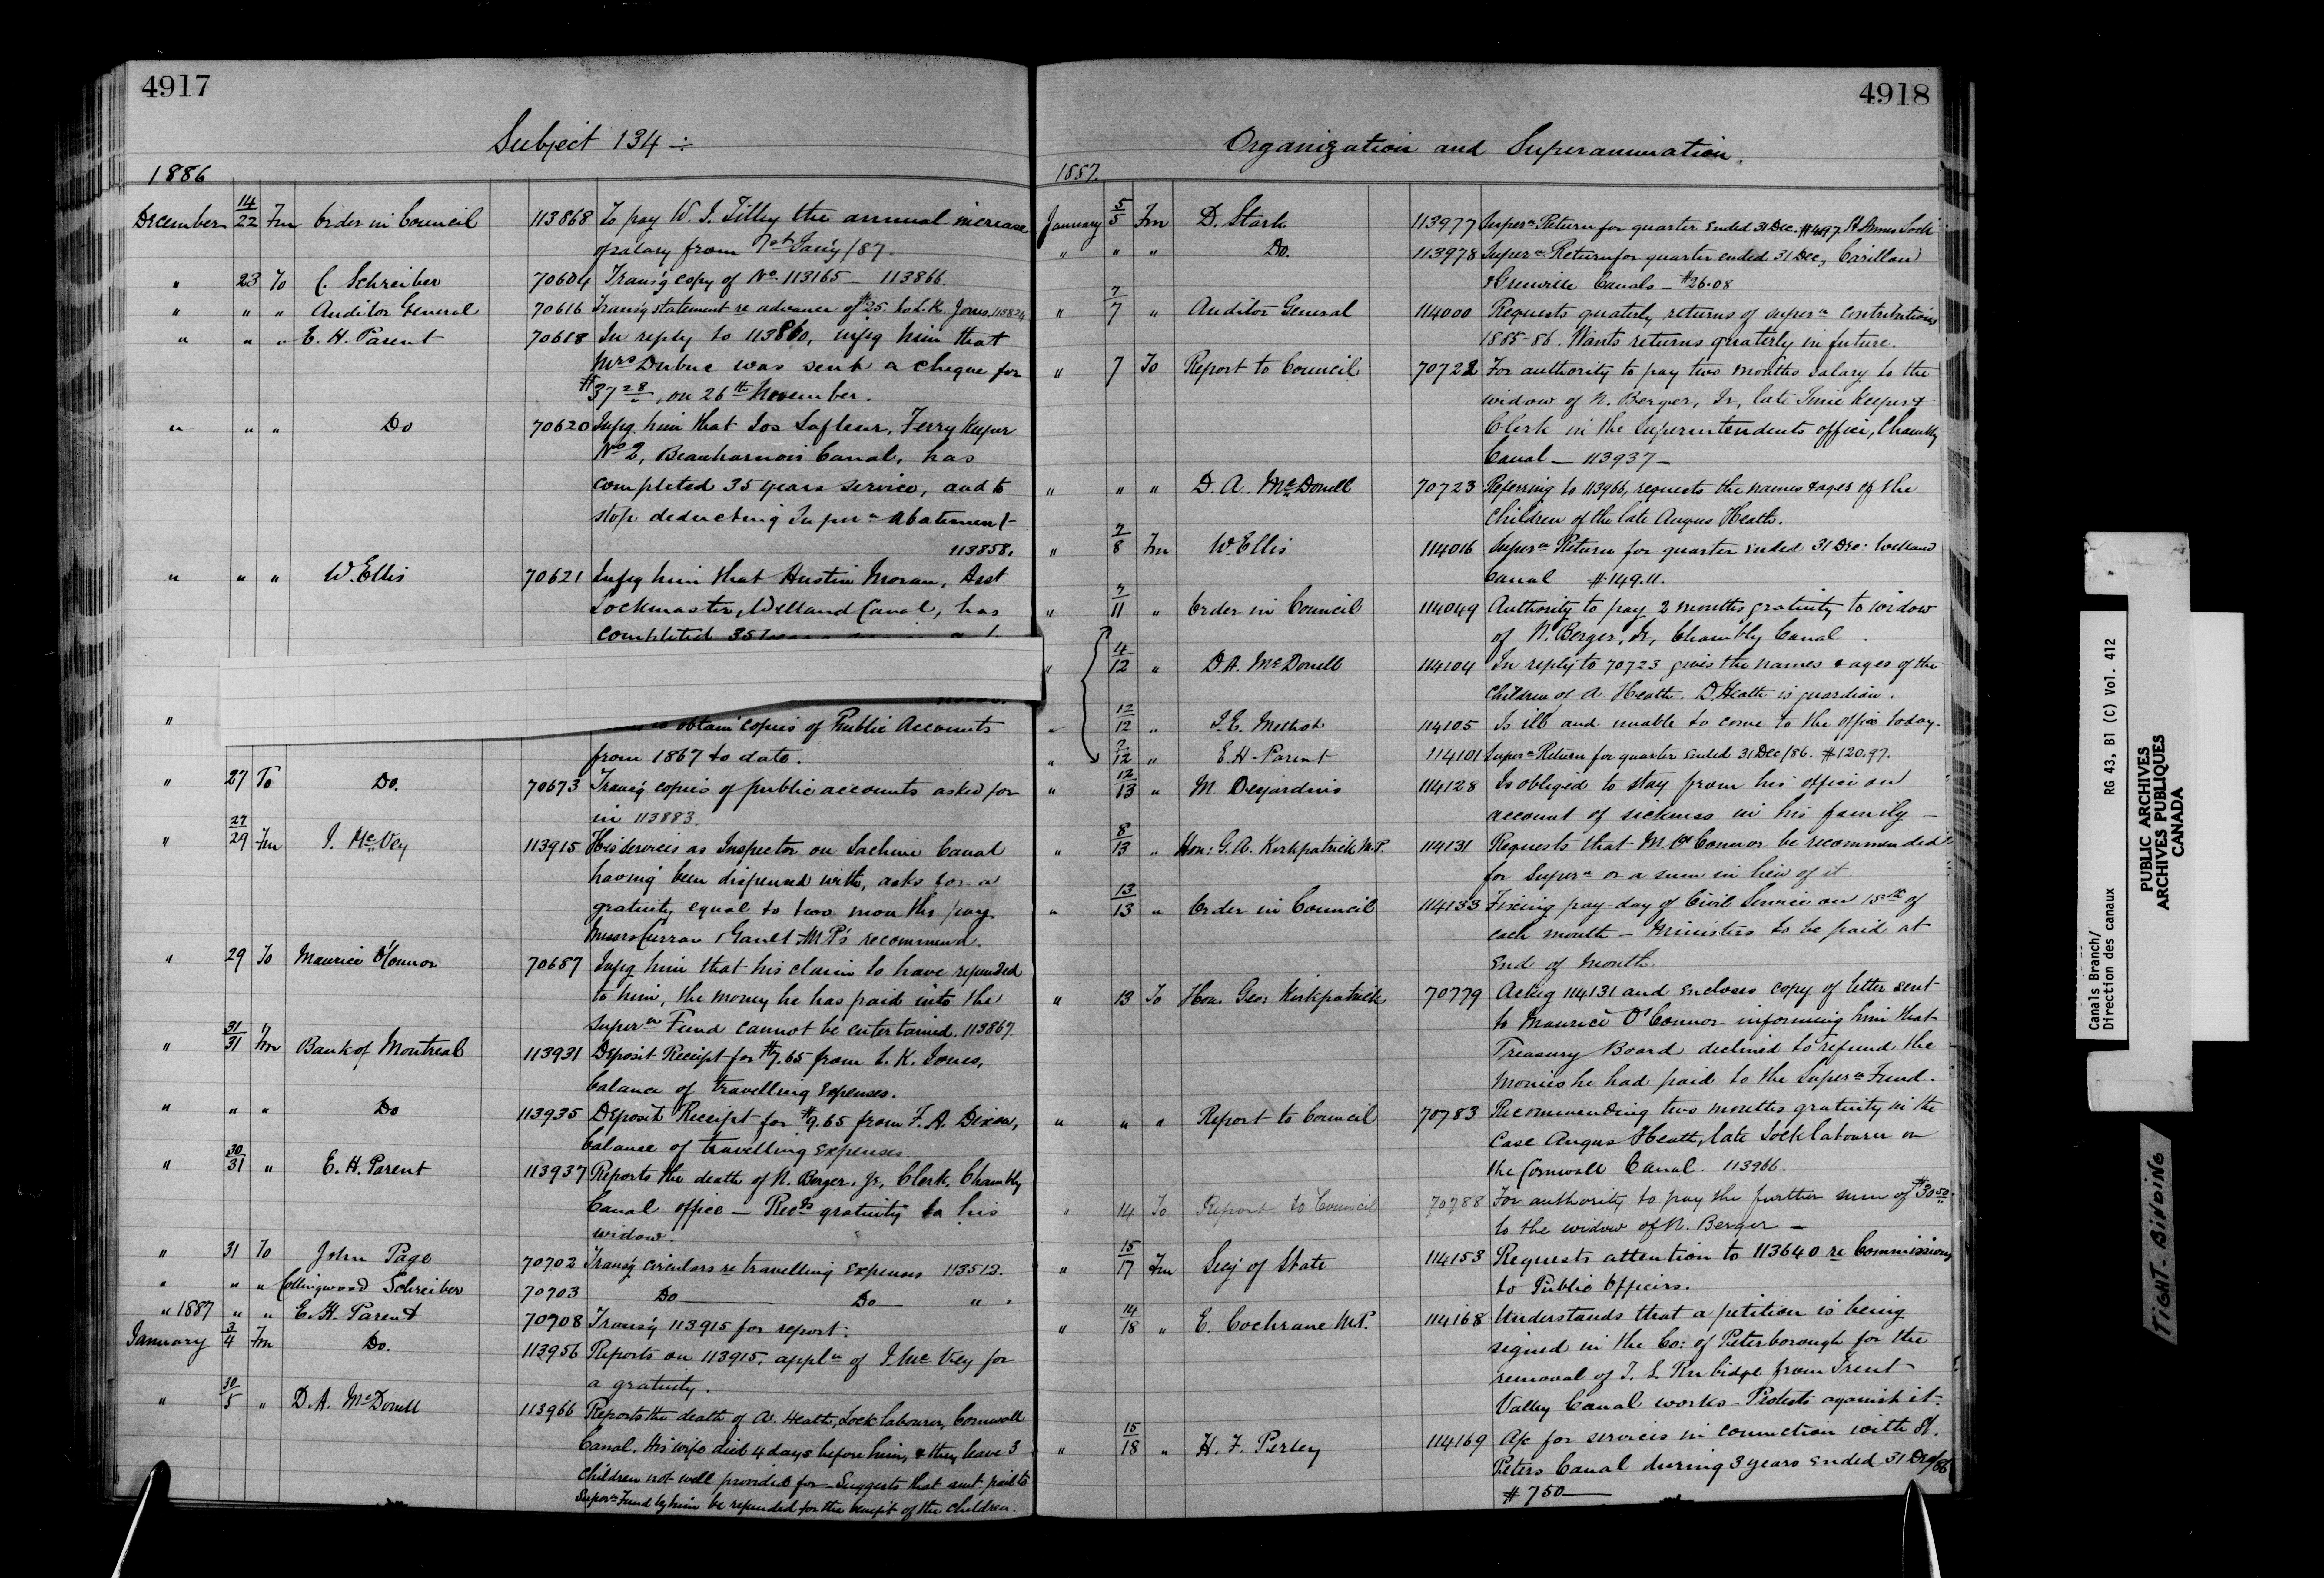 4917
Subject 134 ÷
1886
December 14/22 Fm Order in Council 113868 To pay W. J. Tilley the annual increase
of salary from 1st Jan'y /87.
" 23 To C. Schreiber 70604 Transg copy of No. 113165 — 113866.
" " " Auditor General 70616 Transg statement re advance of $25. to L. K. Jones. 113824
" " " E. H. Parent 70618 In reply to 113860, infg him that
Mrs Dubuc was sent a cheque for
$37 28, on 26th November.
" " " Do 70620 Infg him that Jos Lafleur, Ferry Keeper
No 2, Beauharnois Canal, has
completed 35 years service, and to
stop deducting Super n abatement
113858.
" " " W. Ellis 70621 Infg him that Austin Moran, Asst
Lockmaster, Welland Canal, has
completed 35
" obtain copies of Public Accounts
from 1867 to date.
" 27 To Do. 70673 Transg copies of public accounts asked for
in 113883.
" 27/29 Fm J. McVey 113915 His services as Inspector on Lachine Canal
having been dispensed with, asks for a
gratuity equal to two months pay.
Messrs Curran & Gault M.P's recommend.
" 29 To Maurice O'Connor 70687 Infg him that his claim to have refunded
to him, the money he has paid into the
Super n Fund cannot be entertained. 113867
" 31/31 Fm Bank of Montreal 113931 Deposit Receipt for $7.65 from L. K. Jones,
balance of travelling expenses.
" " " Do 113935 Deposit Receipt for $9.65 from F. A. Dixon,
balance of travelling expenses.
" 30/31 " E. H. Parent 113937 Reports the death of N. Berger, Jr, Clerk, Chambly
Canal office — Recds gratuity to his
widow.
" 31 To John Page 70702 Transg circulars re travelling expenses 113513.
" " " Collingwood Schreiber 70703 Do — Do — " "
" 1887 " " E. H. Parent 70708 Transg 113915 for report.
January 3/4 Fm Do. 113956 Reports on 113915, appln of J. McVey for
a gratuity.
" 30/5 " D. A. McDonell 113966 Reports the death of A. Heath, Lock labourer, Cornwall
Canal. His wife died 4 days before him, & they leave 3
children not well provided for — Suggests that amt. paid to
Super n Fund by him be refunded for the benefit of the children.
4918
Organization and Superannuation.
1887.
January 5/5 Fm D. Stark 113977 Super n Return for quarter ended 31 Dec. St. Annes Lock
" " " Do. 113978 Super n Return for quarter ended 31 Dec, Carillon
& Grenville Canals — $26.08
" 7/7 " Auditor General 114000 Requests quaterly returns of super n contributions
1885-86. Wants returns quaterly in future.
" 7 To Report to Council 70722 For authority to pay two months salary to the
widow of N. Berger, Jr, late Time Keeper &
Clerk in the Superintendents office, Chambly
Canal — 113937 —
" " " D. A. McDonell 70723 Referring to 113966, requests the names & ages of the
Children of the late Angus Heath.
" 7/8 Fm W. Ellis 114016 Super n Return for quarter ended 31 Dec: Welland
Canal $149.11.
" 7/11 " Order in Council 114049 Authority to pay 2 months gratuity to widow
of N. Berger, Jr, Chambly Canal.
" 4/12 " D. A. McDonell 114104 In reply to 70723 gives the names & ages of the
Children of A. Heath. D. Heath is guardian.
" 12/12 " 114105 Is ill and unable to come to the office today.
" 7/12 " E. H. Parent 114101 Super n Return for quarter ended 31 Dec /86. $120.97.
" 12/13 " M. Desjardins 114128 Is obliged to stay from his office on
account of sickness in his family —
" 8/13 " Hon: G. A. Kirkpatrick M.P. 114131 Requests that M. O'Connor be recommended
for Super n or a sum in lieu of it.
" 13/13 " Order in Council 114133 Fixing pay day of Civil Service on 15th of
each month — Ministers to be paid at
End of Month.
" 13 To Hon. Geo: Kirkpatrick 70779 Ackg 114131 and encloses copy of letter sent
to Maurice O'Connor informing him that
Treasury Board declined to refund the
monies he had paid to the Super n Fund.
" " " Report to Council 70783 Recommending two months gratuity in the
case Angus Heath, late Lock labourer on
the Cornwall Canal. 113966.
" 14 To Report to Council 70788 For authority to pay the further sum of $30 50
to the widow of N. Berger —
" 15/17 Fm Secy of State 114153 Requests attention to 113640 re Commissions
to Public Officers.
" 14/18 " E. Cochrane M.P. 114168 Understands that a petition is being
signed in the Co: of Peterborough for the
removal of T. S. Rubidge from Trent
Valley Canal works — Protests against it.
" 15/18 " H. F. Perley 114169 A/c for services in connection with St.
Peters Canal during 3 years ended 31 Dec/86
$750 —
Canals Branch/
Direction des canaux RG 43, B1 (C) Vol. 412
PUBLIC ARCHIVES
ARCHIVES PUBLIQUES
CANADA
TIGHT BINDING